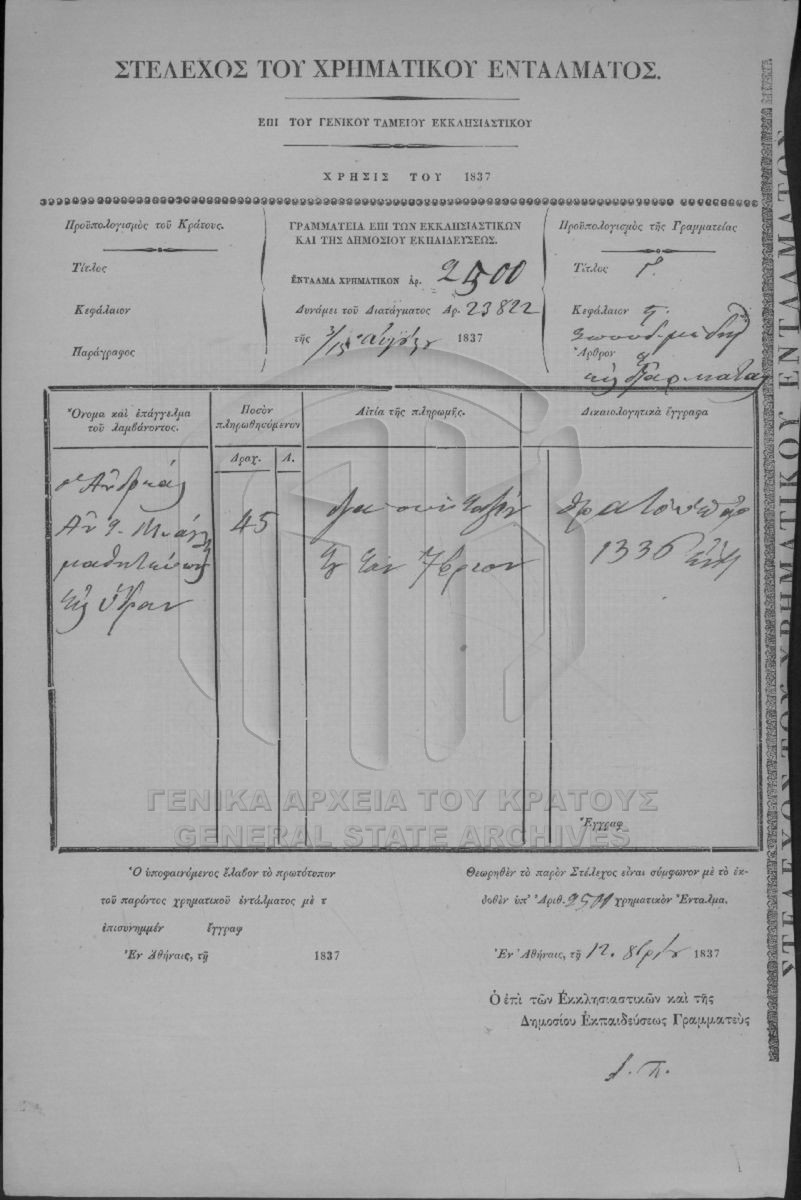 ΣΤΕΛΕΧΟΣ ΤΟΥ ΧΡΗΜΑΤΙΚΟΥ ΕΝΤΑΛΜΑΤΟΣ.
ΕΠΙ ΤΟΥ ΓΕΝΙΚΟΥ ΤΑΜΕΙΟΥ ΕΚΚΛΗΣΙΑΣΤΙΚΟΥ
ΧΡΗΣΙΣ ΤΟΥ 1837
Προϋπολογισμὸς τοῦ Κράτους.
Τίτλος
Κεφάλαιον
Παράγραφος
ΓΡΑΜΜΑΤΕΙΑ ΕΠΙ ΤΩΝ ΕΚΚΛΗΣΙΑΣΤΙΚΩΝ
ΚΑΙ ΤΗΣ ΔΗΜΟΣΙΟΥ ΕΚΠΑΙΔΕΥΣΕΩΣ.
ἘΝΤΑΛΜΑ ΧΡΗΜΑΤΙΚΟΝ ἀρ. 2500
Δυνάμει τοῦ Διατάγματος Ἀρ. 23822
τῆς 3/15 1837
Προϋπολογισμὸς τῆς Γραμματείας
Τίτλος Γ.
Κεφάλαιον
Ἄρθρον
Ὄνομα καὶ ἐπάγγελμα
τοῦ λαμβάνοντος.
ὁ Ἀνδρέας
εἰς Ὕδραν
Ποσὸν
πληρωθησόμενον
Δραχ. Λ.
45
Αἰτία τῆς πληρωμῆς.
τὸν 7βριον
Δικαιολογητικὰ ἔγγραφα
1336
Ἔγγραφ
ΓΕΝΙΚΑ ΑΡΧΕΙΑ ΤΟΥ ΚΡΑΤΟΥΣ
GENERAL STATE ARCHIVES
Ὁ ὑποφαινόμενος ἔλαβον τὸ πρωτότυπον
τοῦ παρόντος χρηματικοῦ ἐντάλματος μὲ τ
ἐπισυνημμέν ἔγγραφ
Ἐν Ἀθήναις, τῇ 1837
Θεωρηθὲν τὸ παρὸν Στέλεχος εἶναι σύμφωνον μὲ τὸ ἐκ-
δοθὲν ὑπ' Ἀριθ. χρηματικὸν Ἔνταλμα.
Ἐν Ἀθήναις, τῇ 12. 8βρίου 1837
Ὁ ἐπὶ τῶν Ἐκκλησιαστικῶν καὶ τῆς
Δημοσίου Ἐκπαιδεύσεως Γραμματεὺς
ΣΤΕΛΕΧΟΣ ΤΟΥ ΧΡΗΜΑΤΙΚΟΥ ΕΝΤΑΛΜΑΤΟΣ